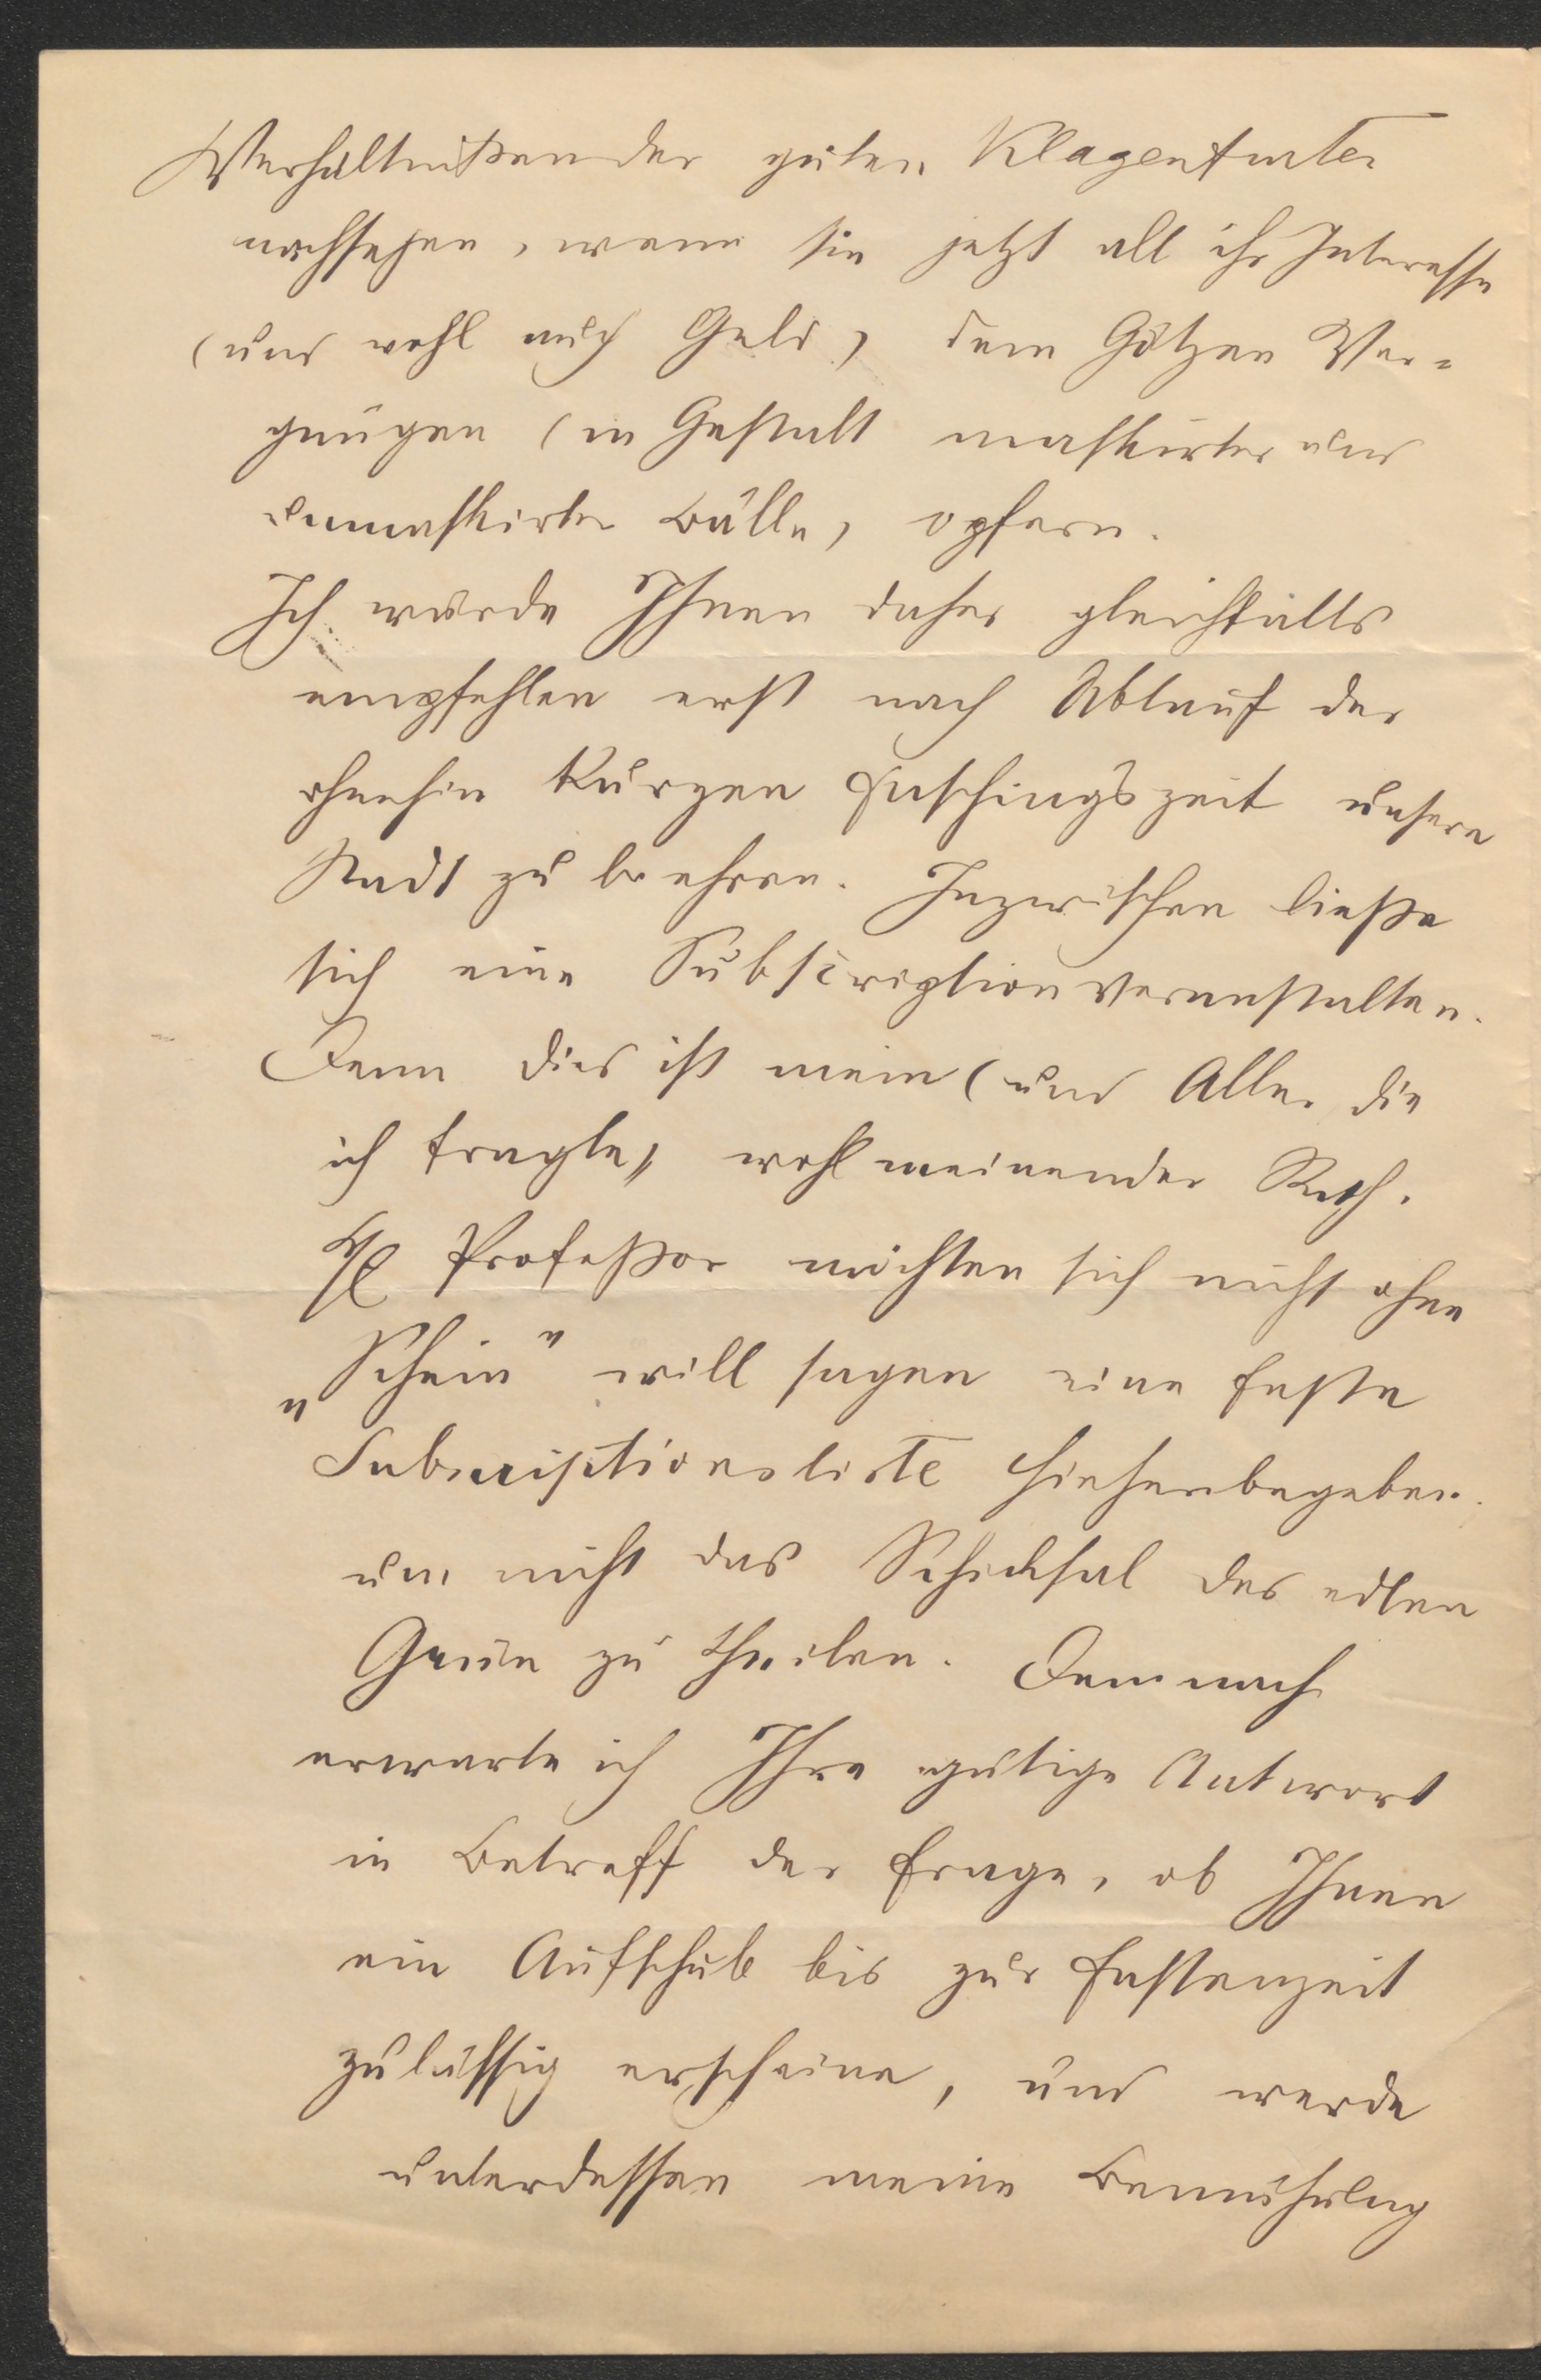 Verhältnißen der guten Klagenfurter
nachsehen, wenn sie jetzt all ihr Interesse
(und wohl auch Geld) dem Götzen Ver=
gnügen (in Gestalt maskirter und
unmaskirter Bälle) opfern.
Ich würde Ihnen daher gleichfalls
empfehlen erst nach Ablauf der
ohnehin kurzen Faschingszeit unsere
Stadt zu beehren. Inzwischen ließe
sich eine Subscription veranstalten.
Denn dies ist mein (und Aller die
ich fragte) wohlmeinender Rath.
Professor möchten sich nicht ohne
„Schein" will sagen eine feste
Subscriptionsliste hieherbegeben.
um nicht das Schicksal des edlen
Grün zu theilen. Demnach
erwarte ich Ihre gütige Antwort
in Betreff der Frage, ob Ihnen
ein Aufschub bis zur Fastenzeit
zulässig erscheine, und werde
unterdessen meine Bemühung